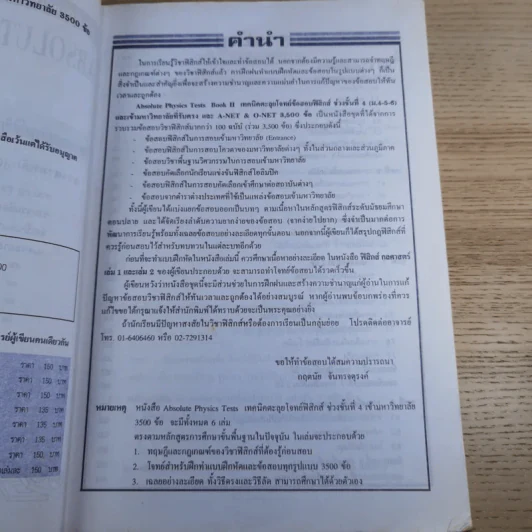 หาวิทยาลัย 3500 ข้อ
คำนำ
ในการเรียนรู้วิชาฟิสิกส์ให้เข้าใจและทำข้อสอบได้ นอกจากต้องมีความรู้และสามารถจำทฤษฎี
และกฎเกณฑ์ต่างๆ ของวิชาฟิสิกส์แล้ว การฝึกฝนทำแบบฝึกหัดและข้อสอบในรูปแบบต่างๆ ก็เป็น
สิ่งจำเป็นและสำคัญยิ่งเพื่อจะสร้างความชำนาญและความแม่นยำในการแก้ปัญหาของข้อสอบให้ทัน
เวลาและถูกต้อง
Absolute Physics Tests Book II เทคนิคตะลุยโจทย์ข้อสอบฟิสิกส์ ช่วงชั้นที่ 4 (ม.4-5-6)
และเข้ามหาวิทยาลัยที่รับตรง และ A-NET & O-NET 3,500 ข้อ เป็นหนังสือชุดที่ได้จากการ
รวบรวมข้อสอบวิชาฟิสิกส์มากกว่า 100 ฉบับ (ร่วม 3,500 ข้อ) ซึ่งประกอบดังนี้
- ข้อสอบฟิสิกส์ในการสอบเข้ามหาวิทยาลัย (Entrance)
- ข้อสอบฟิสิกส์ในการสอบโควตาของมหาวิทยาลัยต่างๆ ทั้งในส่วนกลางและส่วนภูมิภาค
- ข้อสอบวิชาพื้นฐานวิศวกรรมในการสอบเข้ามหาวิทยาลัย
- ข้อสอบคัดเลือกนักเรียนแข่งขันฟิสิกส์โอลิมปิค
- ข้อสอบฟิสิกส์ในการสอบคัดเลือกเข้าศึกษาต่อสถาบันต่างๆ
- ข้อสอบจากตำราต่างประเทศที่ใช้เป็นแหล่งข้อสอบเข้ามหาวิทยาลัย
ทั้งนี้ผู้เขียนได้แบ่งแยกข้อสอบออกเป็นบทๆ ตามเนื้อหาในหลักสูตรฟิสิกส์ระดับมัธยมศึกษา
ตอนปลาย และได้จัดเรียงลำดับความยากง่ายของข้อสอบ (จากง่ายไปยาก) ซึ่งจำเป็นมากต่อการ
พัฒนาการเรียนรู้พร้อมทั้งเฉลยข้อสอบอย่างละเอียดทุกขั้นตอน นอกจากนี้ผู้เขียนก็ได้สรุปกฎฟิสิกส์ที่
ควรรู้ก่อนสอบไว้สำหรับทบทวนในแต่ละบทอีกด้วย
ก่อนที่จะทำแบบฝึกหัดในหนังสือเล่มนี้ ควรศึกษาเนื้อหาอย่างละเอียด ในหนังสือ ฟิสิกส์ กลศาสตร์
เล่ม 1 และเล่ม 2 ของผู้เขียนประกอบด้วย จะสามารถทำโจทย์ข้อสอบได้รวดเร็วขึ้น
ผู้เขียนหวังว่าหนังสือชุดนี้จะมีส่วนช่วยในการฝึกฝนและสร้างความชำนาญแก่ผู้อ่านในการแก้
ปัญหาข้อสอบวิชาฟิสิกส์ให้ทันเวลาและถูกต้องได้อย่างสมบูรณ์ หากผู้อ่านพบข้อบกพร่องที่ควร
แก้ไขขอได้กรุณาแจ้งให้สำนักพิมพ์ได้ทราบด้วยจะเป็นพระคุณอย่างยิ่ง
ถ้านักเรียนมีปัญหาสงสัยในวิชาฟิสิกส์หรือต้องการเรียนเป็นกลุ่มย่อย โปรดติดต่ออาจารย์
โทร. 01-6406460 หรือ 02-7291314
ขอให้ทำข้อสอบได้สมความปรารถนา
กฤตนัย จันทรจตุรงค์
หมายเหตุ หนังสือ Absolute Physics Tests เทคนิคตะลุยโจทย์ฟิสิกส์ ช่วงชั้นที่ 4 เข้ามหาวิทยาลัย
3500 ข้อ จะมีทั้งหมด 6 เล่ม
ตรงตามหลักสูตรการศึกษาขั้นพื้นฐานในปัจจุบัน ในเล่มจะประกอบด้วย
1. ทฤษฎีและกฎเกณฑ์ของวิชาฟิสิกส์ที่ต้องรู้ก่อนสอบ
2. โจทย์สำหรับฝึกทำแบบฝึกหัดและข้อสอบทุกรูปแบบ 3500 ข้อ
3. เฉลยอย่างละเอียด ทั้งวิธีตรงและวิธีลัด สามารถศึกษาได้ด้วยตัวเอง
ราคา 150 บาท
ราคา 150 บาท
ราคา 150 บาท
ราคา 135 บาท
ราคา 135 บาท
ราคา 150 บาท